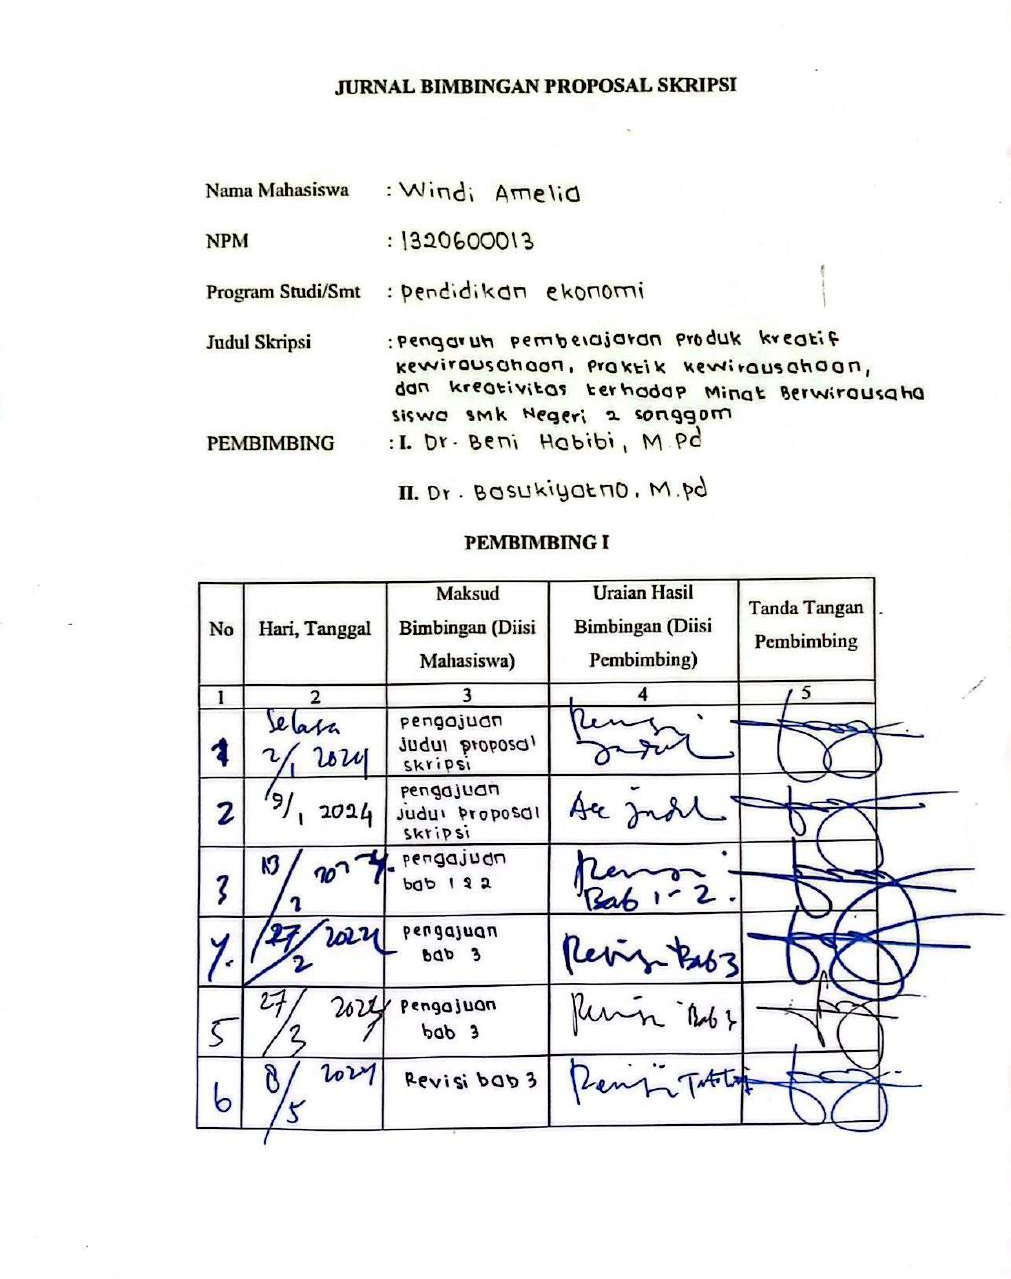 JURNAL BIMBINGAN PROPOSAL SKRIPSI
Nama Mahasiswa : Windi Amelia
NPM : 1320600013
Program Studi/Smt : Pendidikan ekonomi
Judul Skripsi : Pengaruh pembelajaran Produk kreatif
kewirausahaan, Praktik kewirausahaan,
dan kreativitas terhadap Minat Berwirausaha
siswa SMK Negeri 2 Songgom
PEMBIMBING : I. Dr. Beni Habibi, M.Pd
II. Dr. Basukiyatno, M.pd
PEMBIMBING I
No Hari, Tanggal Maksud Bimbingan (Diisi Mahasiswa) Uraian Hasil Bimbingan (Diisi Pembimbing) Tanda Tangan Pembimbing
1 2 3 4 5
1 Selasa 2/1 2024 pengajuan judul proposal skripsi Revisi Judul
2 9/1 2024 pengajuan judul proposal skripsi Acc judul
3 pengajuan bab 1 & 2 Revisi Bab 1-2.
4. 27/2 2024 pengajuan bab 3 Revisi Bab 3
5 27/3 2024 pengajuan bab 3 Revisi Bab 3
6 8/5 2024 Revisi bab 3 Revisi